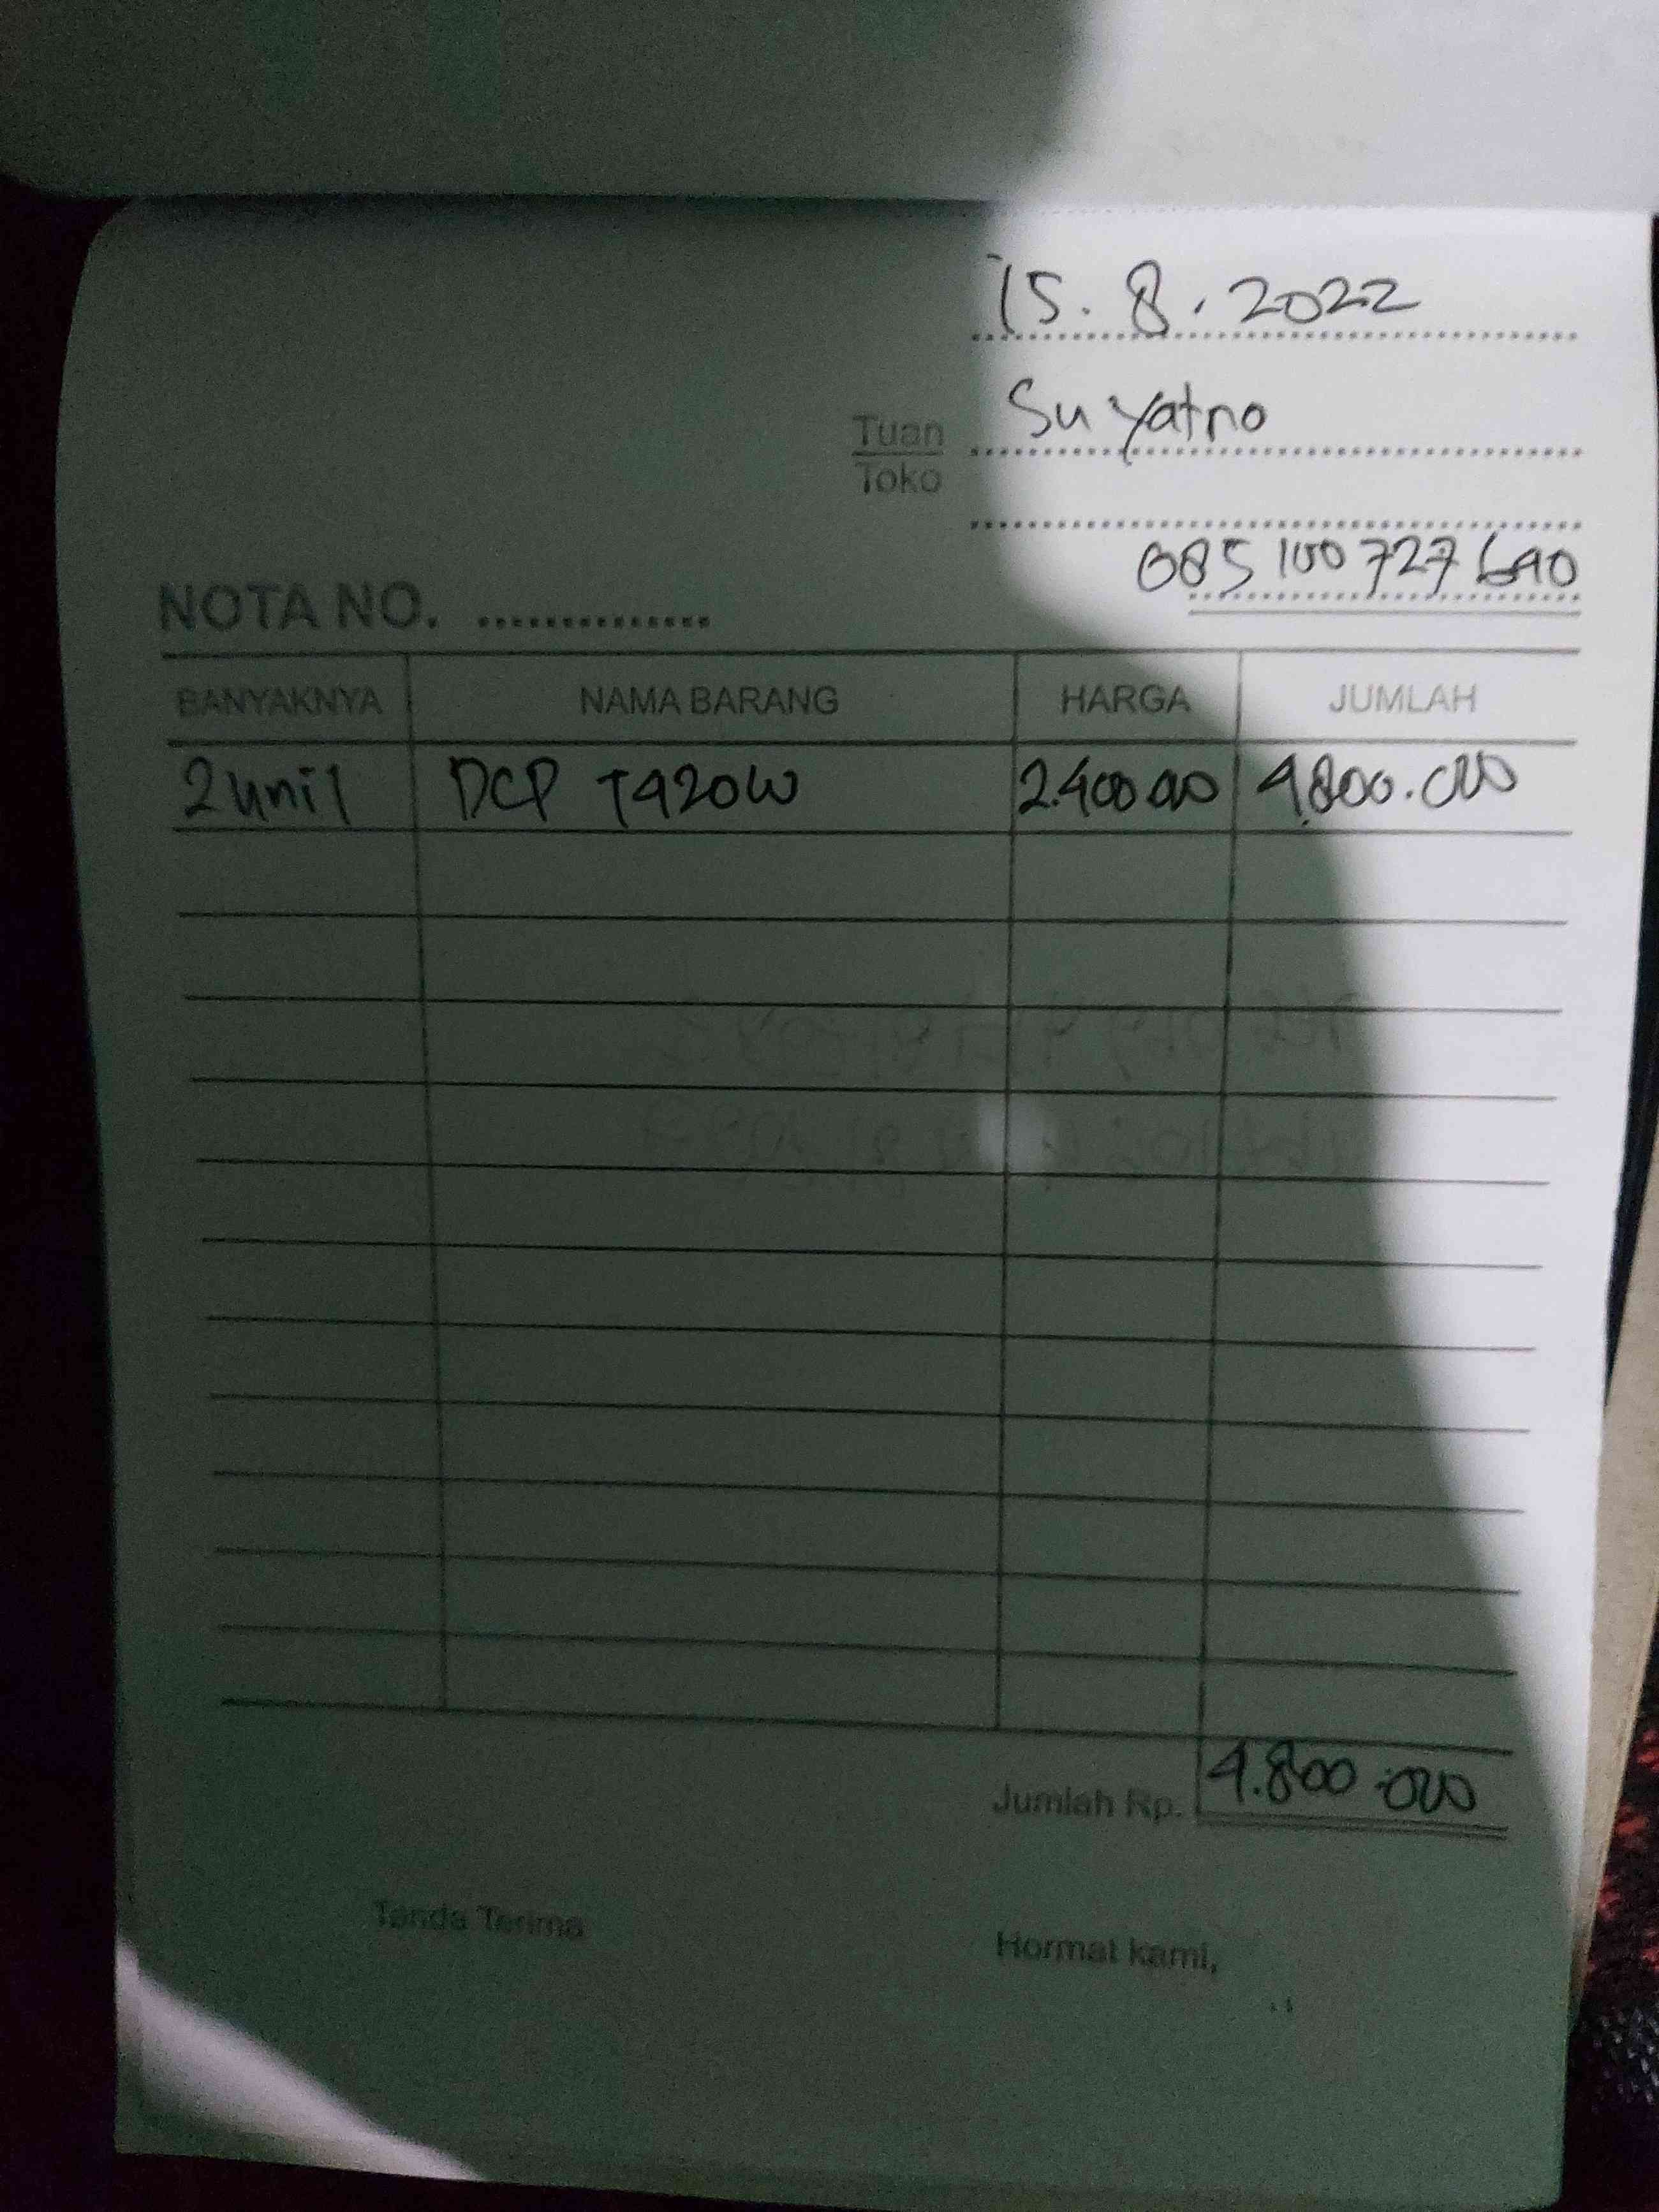 15.8.2022
Tuan Suyatno
Toko
085100727690
NOTA NO. ..............
BANYAKNYA NAMA BARANG HARGA JUMLAH
2 unit DCP T420W 2.400.000 4.800.000
Jumlah Rp. 4.800.000
Tanda Terima
Hormat kami,